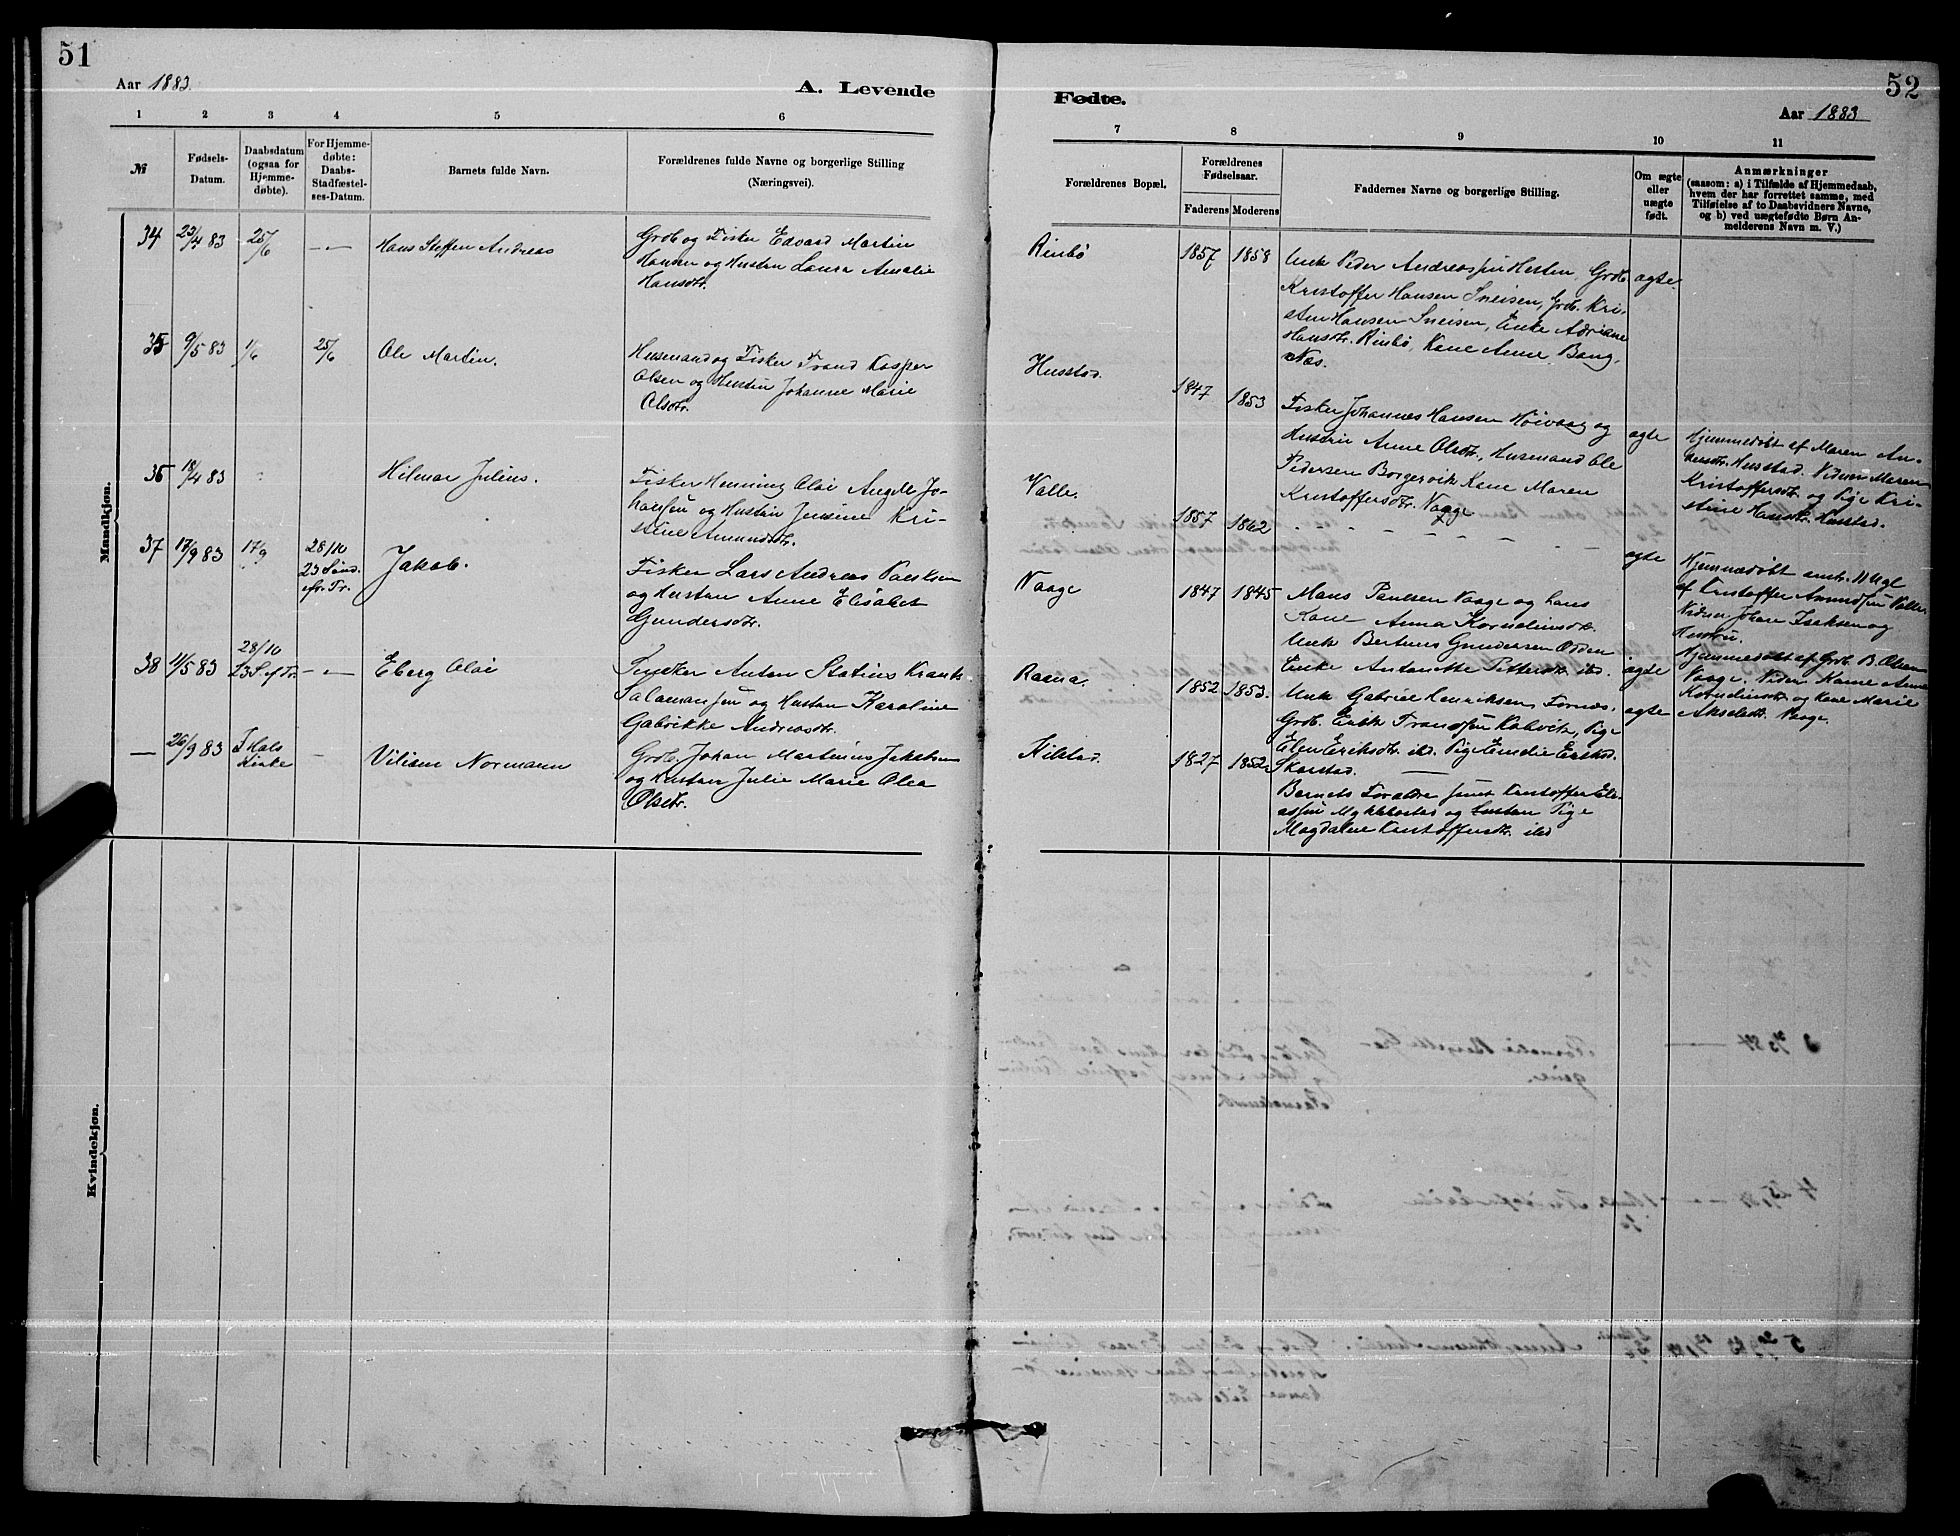 51
Aar 1883.
A. Levende
1 2 3 4 5 6
№
Fødsels-
Datum.
Daabsdatum
(ogsaa for
Hjemme-
døbte).
For Hjemme-
døbte:
Daabs-
Stadfæstel-
ses-Datum.
Barnets fulde Navn.
Forældrenes fulde Navne og borgerlige Stilling
(Næringsvei).
Mandkjøn.
34 23/4 83 25/6 — — Hans Steffen Andreas
Grdb. og Fisker Edvard Martin
Hansen og Hustru Laura Amalie
Hansdtr.
35 9/5 83 1/6 25/6 Ole Martin.
Husmand og Fisker Trond Kasper
Olsen og Hustru Johanne Marie
Olsdtr.
36 18/4 83 Hilmar Julius.
Fisker Henning Olai Angell Jo-
hansen og Hustru Jensine Kri-
stine Amundsdtr.
37 17/9 83 17/9 28/10
23 Sønd.
efr. Tr.
Jakob.
Fisker Lars Andreas Paulsen
og Hustru Anne Elisabet
Gundersdtr.
38 11/5 83 28/10
23 S. ef Tr. — — Eberg Olai
Anton Statius Krank
Salamonsen og Hustru Karoline
Gabrikke Andreasdtr.
— 26/9 83 I Hals
Kirke — Vilism Normann
Grdb. Johan Martinius Jakobsen
og Hustru Julie Marie Olea
Olsdtr.
Kvindekjøn.
52
Fødte.
Aar 1883
7 8 9 10 11
Forældrenes Bopæl.
Forældrenes
Fødselsaar.
Faderens Moderens
Faddernes Navne og borgerlige Stilling.
Om ægte
eller
uægte
født.
Anmærkninger
(saasom: a) i Tilfælde af Hjemmedaab,
hvem der har forrettet samme, med
Tilføielse af to Daabsvidners Navne,
og b) ved uægtefødte Børn An-
melderens Navn m. V.)
Rinbø 1857 1858
Unk. Peder Andreassen Hesten, Grdb.
Kristoffer Hansen Sneisen, Grdb. Kri-
sten Hansen Sneisen, Enke Adriane
Hansdtr. Rinbø, Kone Anne Bang,
Næs.
ægte
Husstad. 1847 1853
Fisker Johannes Hansen Høivaag og
Hustru Anne Olsdtr., Husmand Ole
Pedersen Borgervik Kone Maren
Kristoffersdtr. Vaage
ægte
Hjemmedøbt af Maren An-
Husstad. Vidner Maren
Kristoffersdtr. og Pige Kri-
stine Hansdtr. Husstad.
Valle. 1857 1862 - - - - - - -
ægte
Hjemmedøbt
af Kristoffer Amundsen Valle.
Vidner Johan Isaksen og
Hustru.
Vaage 1847 1845
Mons Paulsen Vaage og hans
Kone Anna Kornelius dtr.
Unk. Bertinus Gundersen Odden
Enke Antonette Pettersdtr. ibd.
ægte
Hjemmedøbt af Grdb. B. Olsen
Vaage. Vidner Kone Anna
Korneliusdtr. og Kone Marie
Akseldtr. Vaage.
Rasma. 1852 1853.
Unk. Gabriel Henriksen Fornes,
Grdb. Erik Trondsen Kalvik, Pige
Elen Eriksdtr. ibd. Pige Emelie Eriksd.
Skarstad. —
ægte
Kilstad. 1827 1852
Barnets Forældre samt Kristoffer Eli-
assen Myklebostad og Pige
Magdalene Kristoffersdtr. ibd